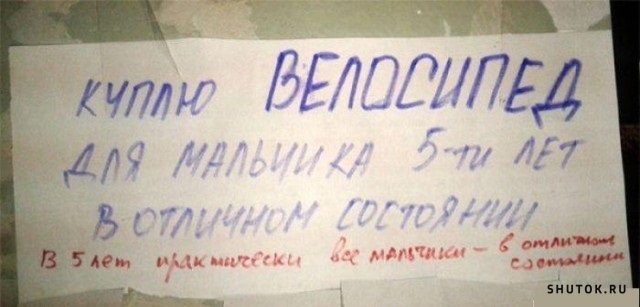 КУПЛЮ ВЕЛОСИПЕД
ДЛЯ МАЛЬЧИКА 5-ТИ ЛЕТ
В ОТЛИЧНОМ СОСТОЯНИИ
В 5 лет практически все мальчики – в отличном
состоянии
SHUTOK.RU